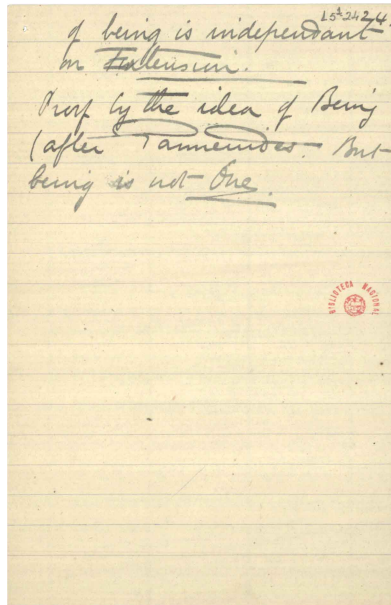 15A-24 24
of being is independant
on Extension.
Proof by the idea of Being
(after Parmenides. But
being is not One.
BIBLIOTECA NACIONAL